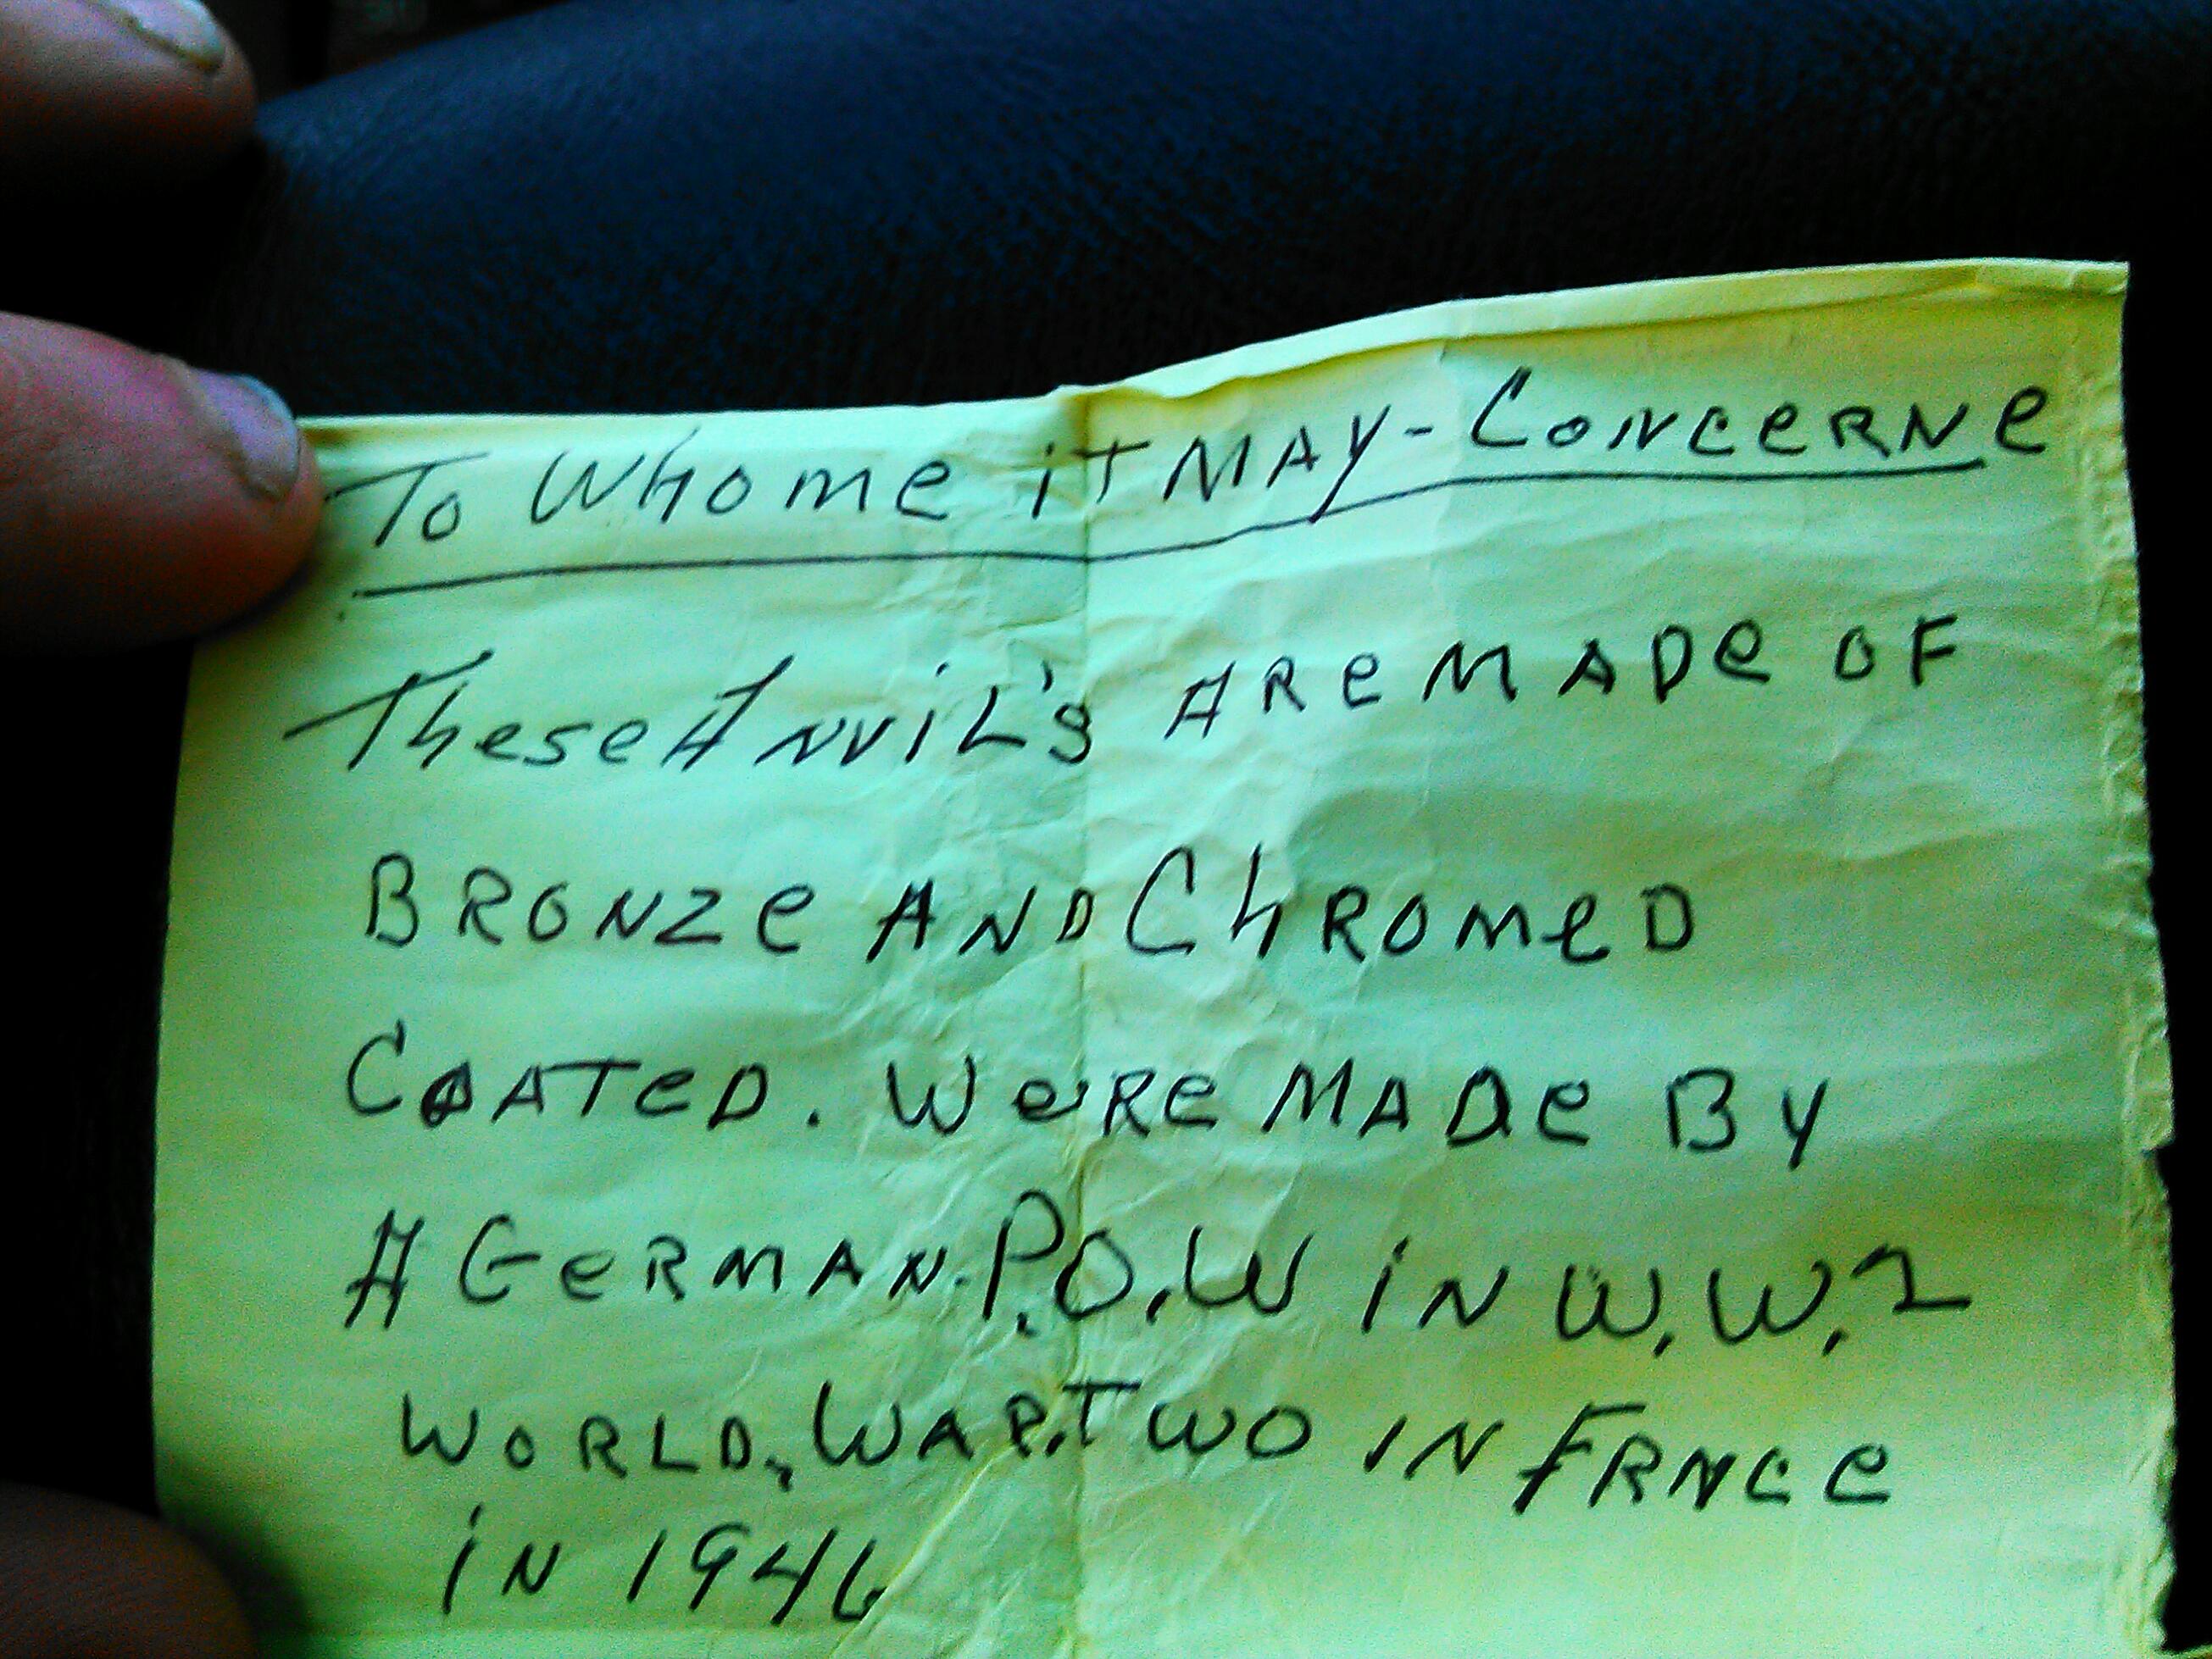 To Whome iT MAy - ConceRNe
These Anvil's ARe MADe OF
BRONZe AND ChRomeD
COATeD. WeRe MADe By
A GeRMAN. P.O.W iN W.W.2
WORLD, WAR, TWO iN FRNCe
iN 1946